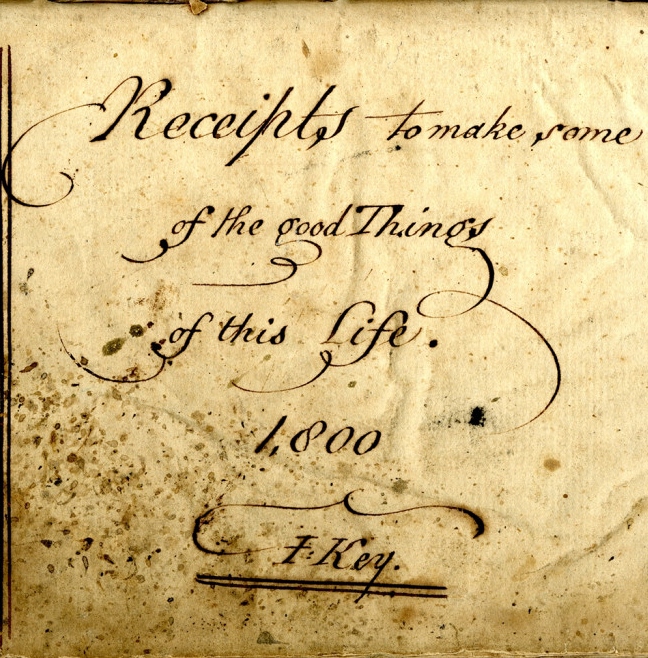 Receipts to make some
of the good Things
of this Life.
1,800
I: Key.